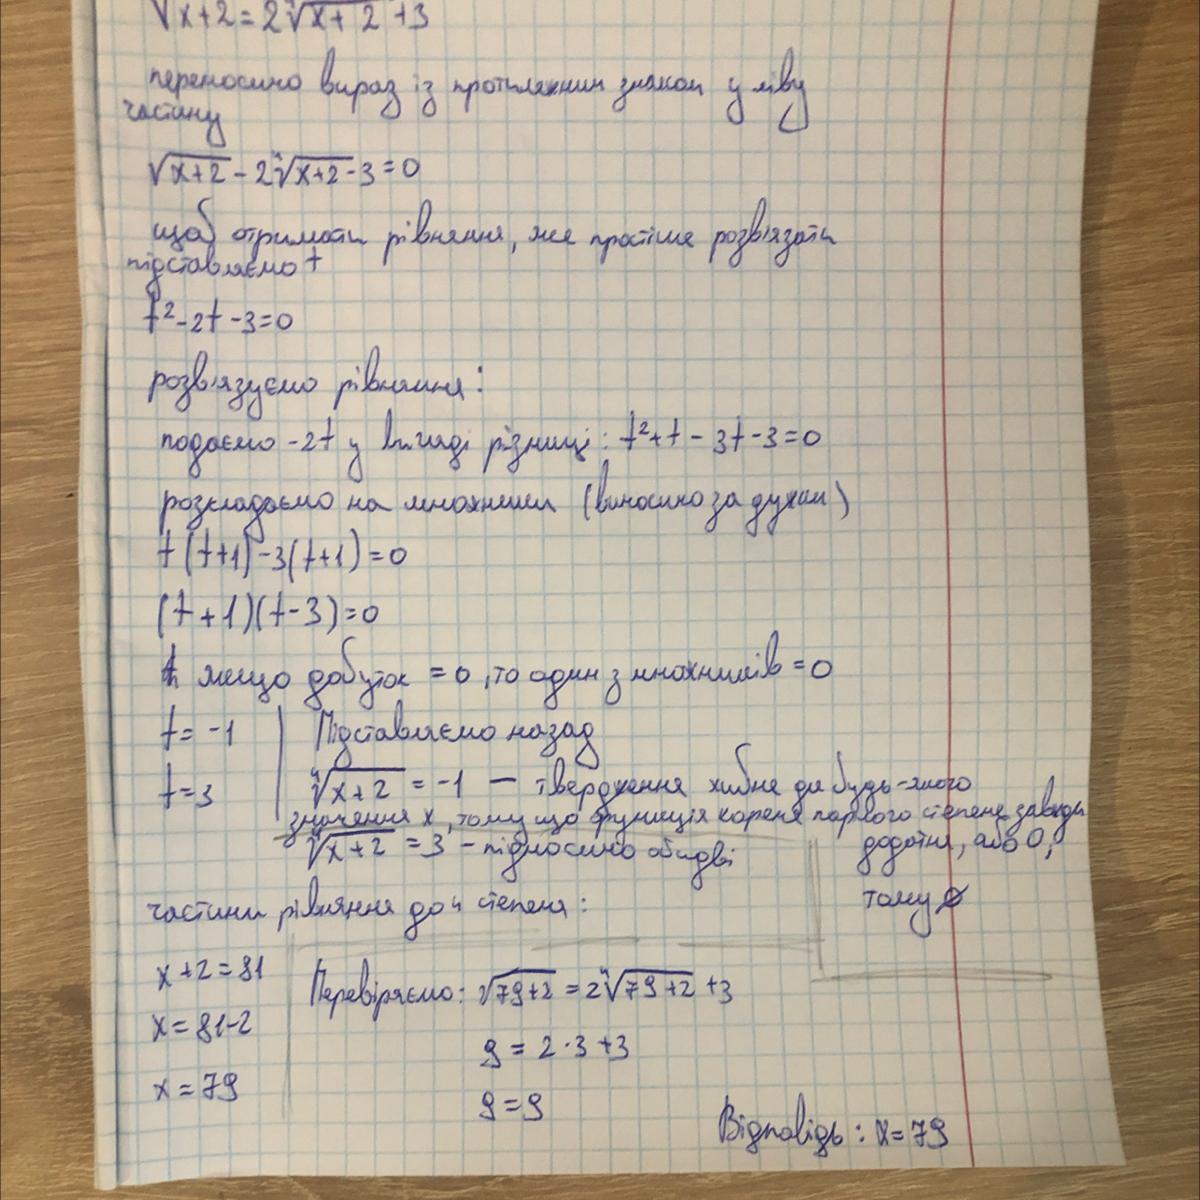 √x+2 = 2∜x+2 +3
переносимо вираз із протилежним знаком у ліву
частину
√x+2 - 2∜x+2 - 3 = 0
щоб отримати рівняння, яке простіше розв'язати
підставляємо t
t² - 2t - 3 = 0
розв'язуємо рівняння:
подаємо -2t у вигляді різниці: t² + t - 3t - 3 = 0
розкладаємо на множники (виносимо за дужки)
t(t+1) - 3(t+1) = 0
(t+1)(t-3) = 0
якщо добуток = 0, то один з множників = 0
t = -1 | Підставляємо назад
t = 3 ∜x+2 = -1 — твердження хибне для будь-якого
значення x, тому що функція кореня парного степеня завжди
додатня, або 0,
тому ∅
∜x+2 = 3 - підносимо обидві
частини рівняння до 4 степеня:
x + 2 = 81
x = 81 - 2
x = 79
Перевіряємо: √79+2 = 2∜79+2 + 3
9 = 2·3 + 3
9 = 9
Відповідь: x = 79